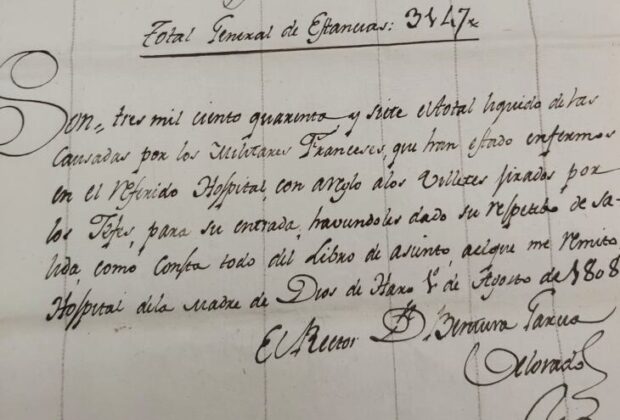 Total General de Estancias: 3147,,
Son,, tres mil ciento quarenta y siete el total liquido de las
causadas por los Militares Franceses, que han estado enfermos
en el referido Hospital, con areglo a los Villetes firados por
los Jefes, para su entrada, haviendoles dado su respetibo de sa-
lida, como Consta todo del Libro de asiento, aelque me remito
Hospital dela Madre de Dios de Haro 1º de Agosto de 1808
El Rector Dn. Bentura Garcia